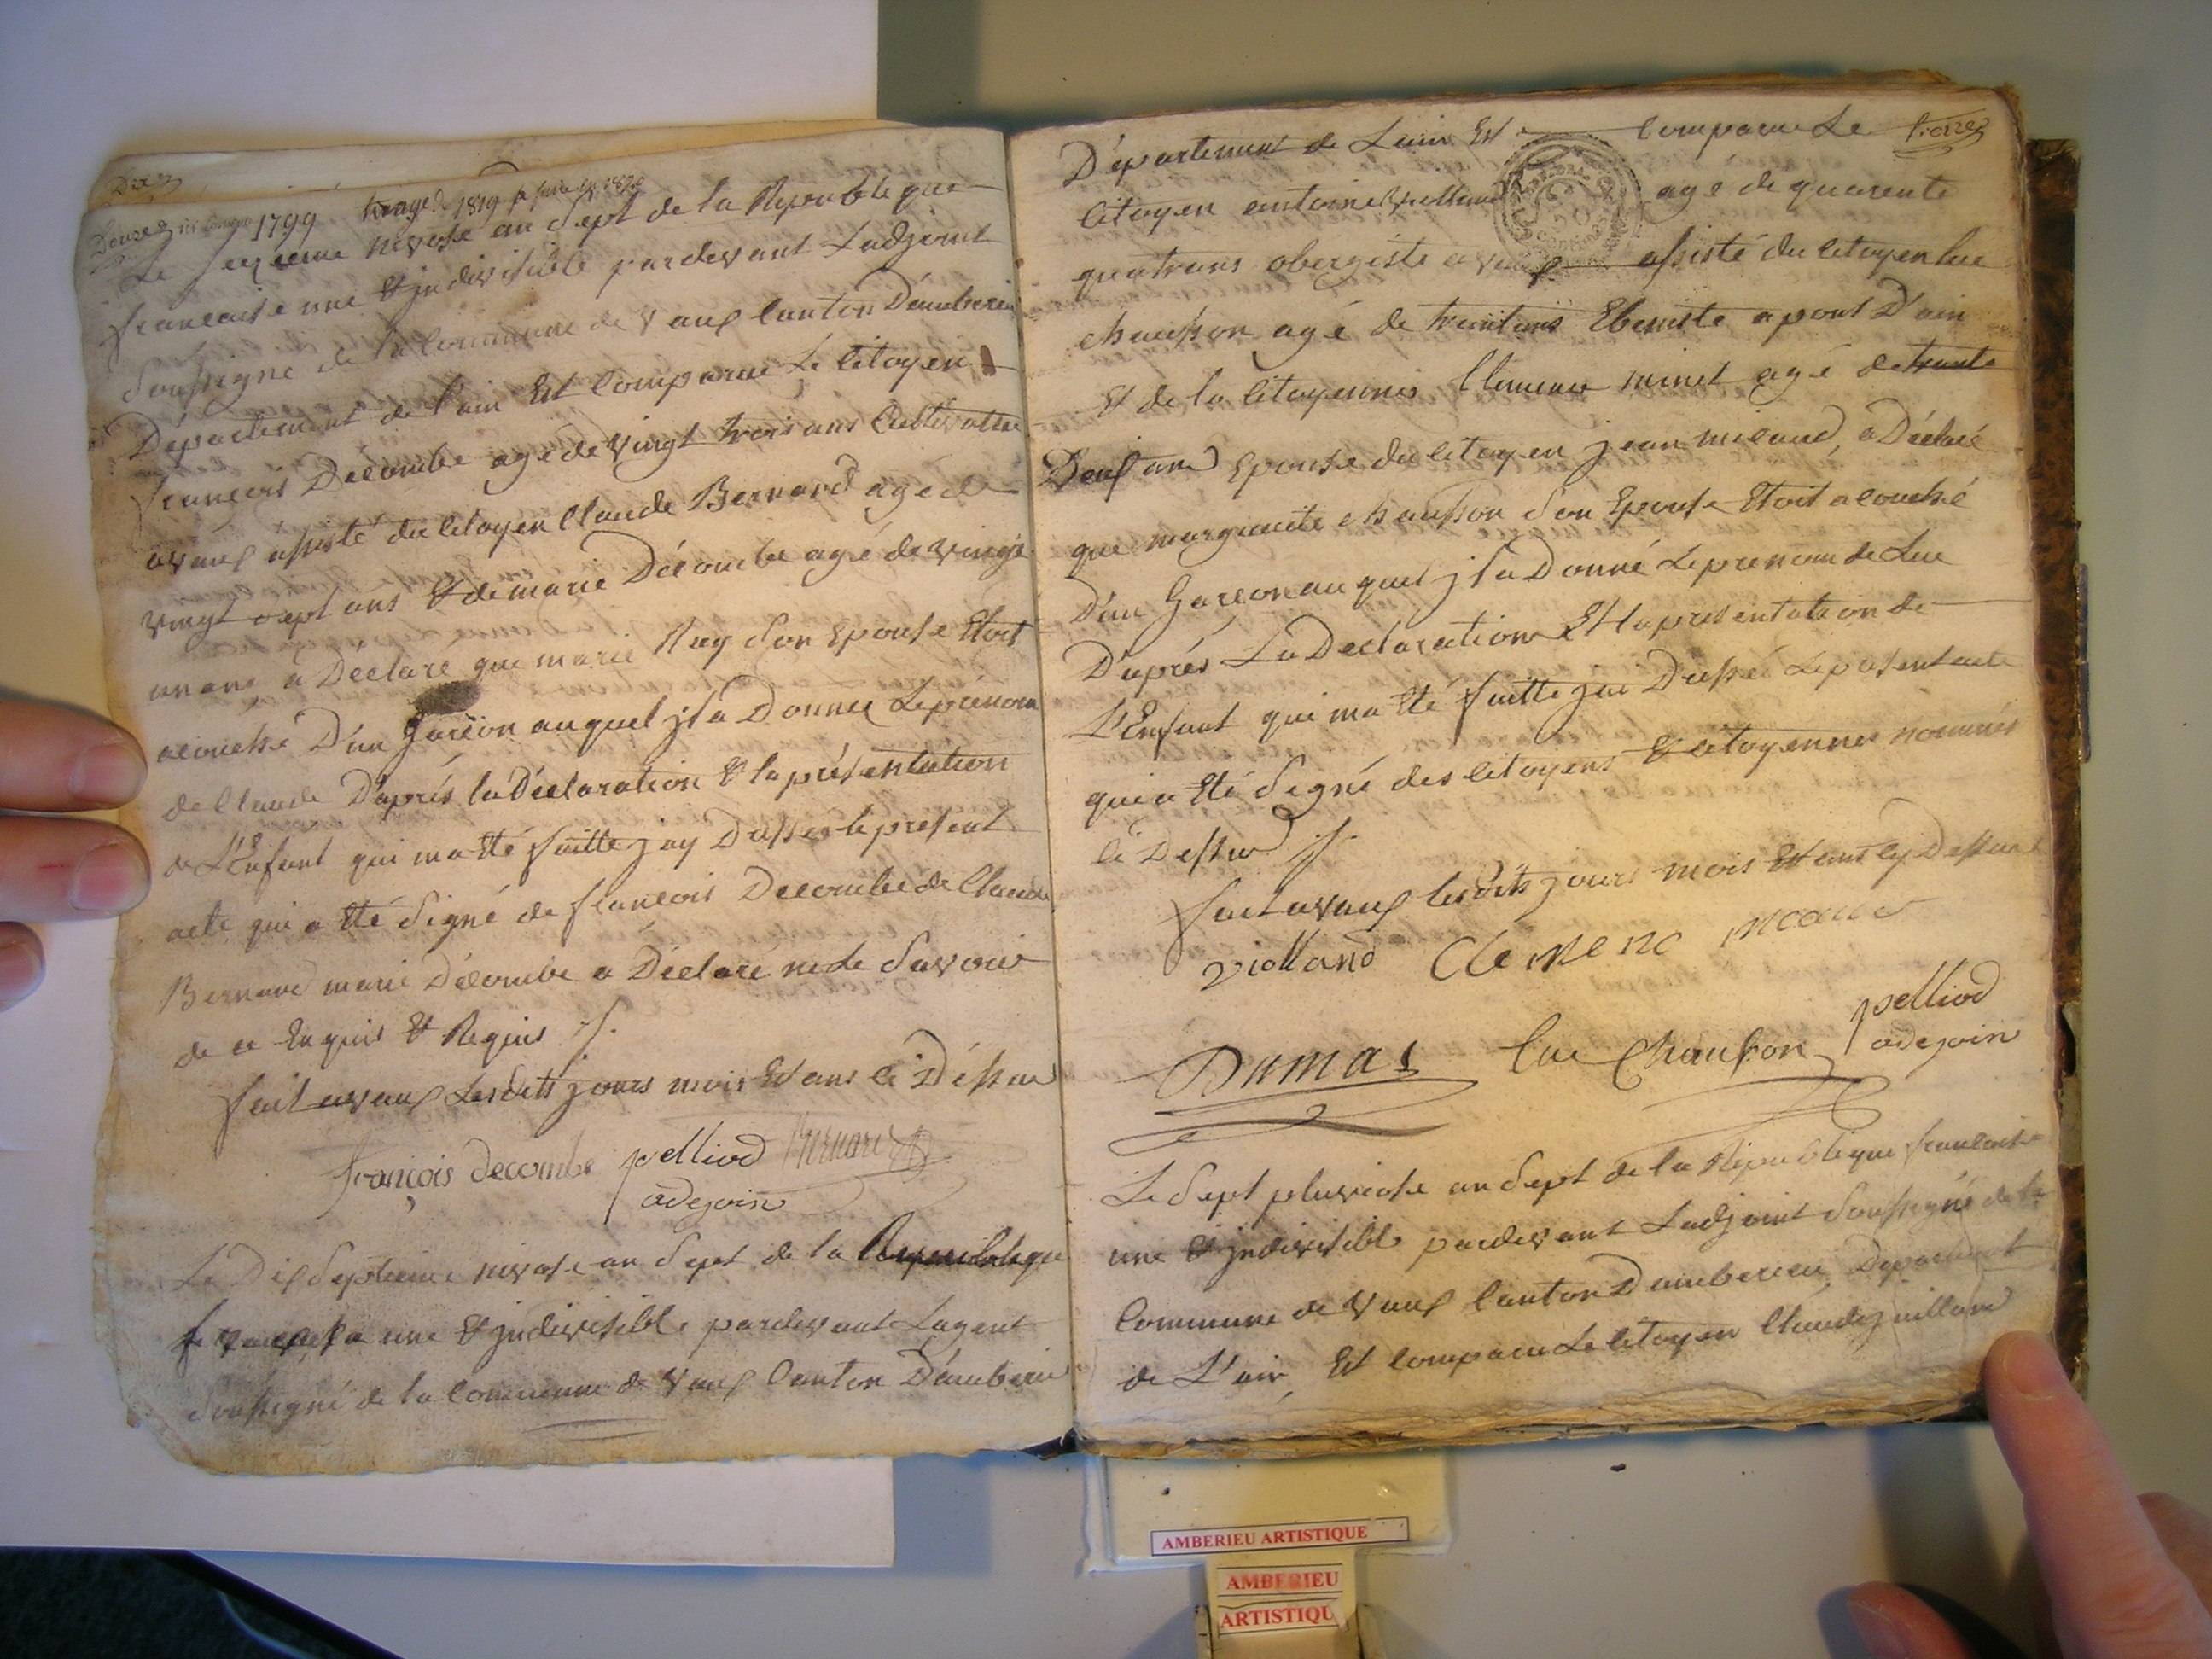 Douze 1799 tirage 1819
Le seizieme nivose an sept de la Republique
francaise une & jndivisible pardevant Ladjoint
soussigné de la Commune de Vaux Canton Damberieu
Département de l'ain Est Comparue Le Citoyen
francois Décombe agé de vingt trois ans Cultivateur
a vaux assisté du Citoyen Claude Bernard agé de
vingt sept ans Et de marie Décombe agé de vingt
un ans, a Déclaré que marie son Epouse Etoit
acouchée D'un Garcon auquel jl a Donnee Le prenom
de Claude D'aprés la Déclaration & la présentation
de L'Enfant qui ma Eté faitte jay Dressee le present
acte qui a Eté signé de francois Decombe de Claude
Bernard marie Décombe a Déclaré ne Le savoir
de ce Enquis & Requis
fait a vaux Les dits jours mois Et ans ci Dessus
françois decombe pelliod Bernard
adejoin
Le Dix septieme nivose an sept de la Republique
francaise une & jndivisible pardevant Lagent
soussigné de la Commune de Vaux Canton Damberieu
Département de Lain Est Comparue Le
Citoyen antoine Violland agé de quarente
quatrans obergiste a vaux assisté du Citoyen luc
chausson agé de trentans Ebeniste a pont D'ain
Et de la Citoyennes Clemence minet agé de trente
Deux ans Epouse du Citoyen jean micaud, a Déclaré
que marguerite chausson son Epouse Etoit acouchée
D'un Garcon auquel jl a Donné Le prenom de Luc
D'aprés La Declaration Et la presentation de
L'Enfant qui ma Eté faitte jai Dressé Le present acte
qui a Eté signé des Citoyens & Citoyennes nommés
ci Dessus
fait a vaux les dits jours mois Et ans cy Dessus
violland Clemenc
pelliod
Dumas luc Chausson adejoin
Le sept pluviose an sept de la Republique francaise
une & jndivisible pardevant Ladjoint soussigné de la
Commune de Vaux Canton Damberieu, Departement
de L'ain, Est Comparu Le Citoyen Claude juillard
AMBERIEU ARTISTIQUE
AMBERIEU
ARTISTIQU